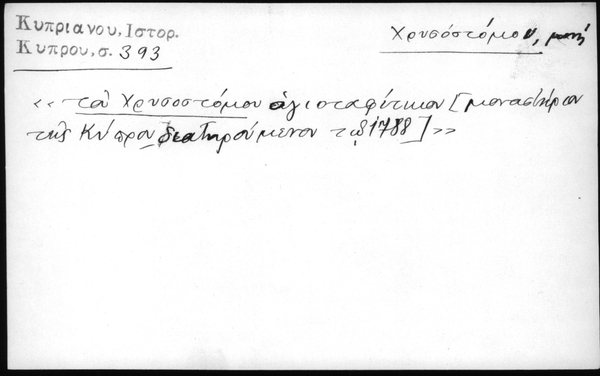 Κυπριανου, Ιστορ.
Κυπρου, σ. 393
Χρυσόστόμου, μονή
« του Χρυσοστόμου ἁγιοταφίτικον [μοναστήριον
της Κύπρου διατηρούμενον τῷ 1788] »